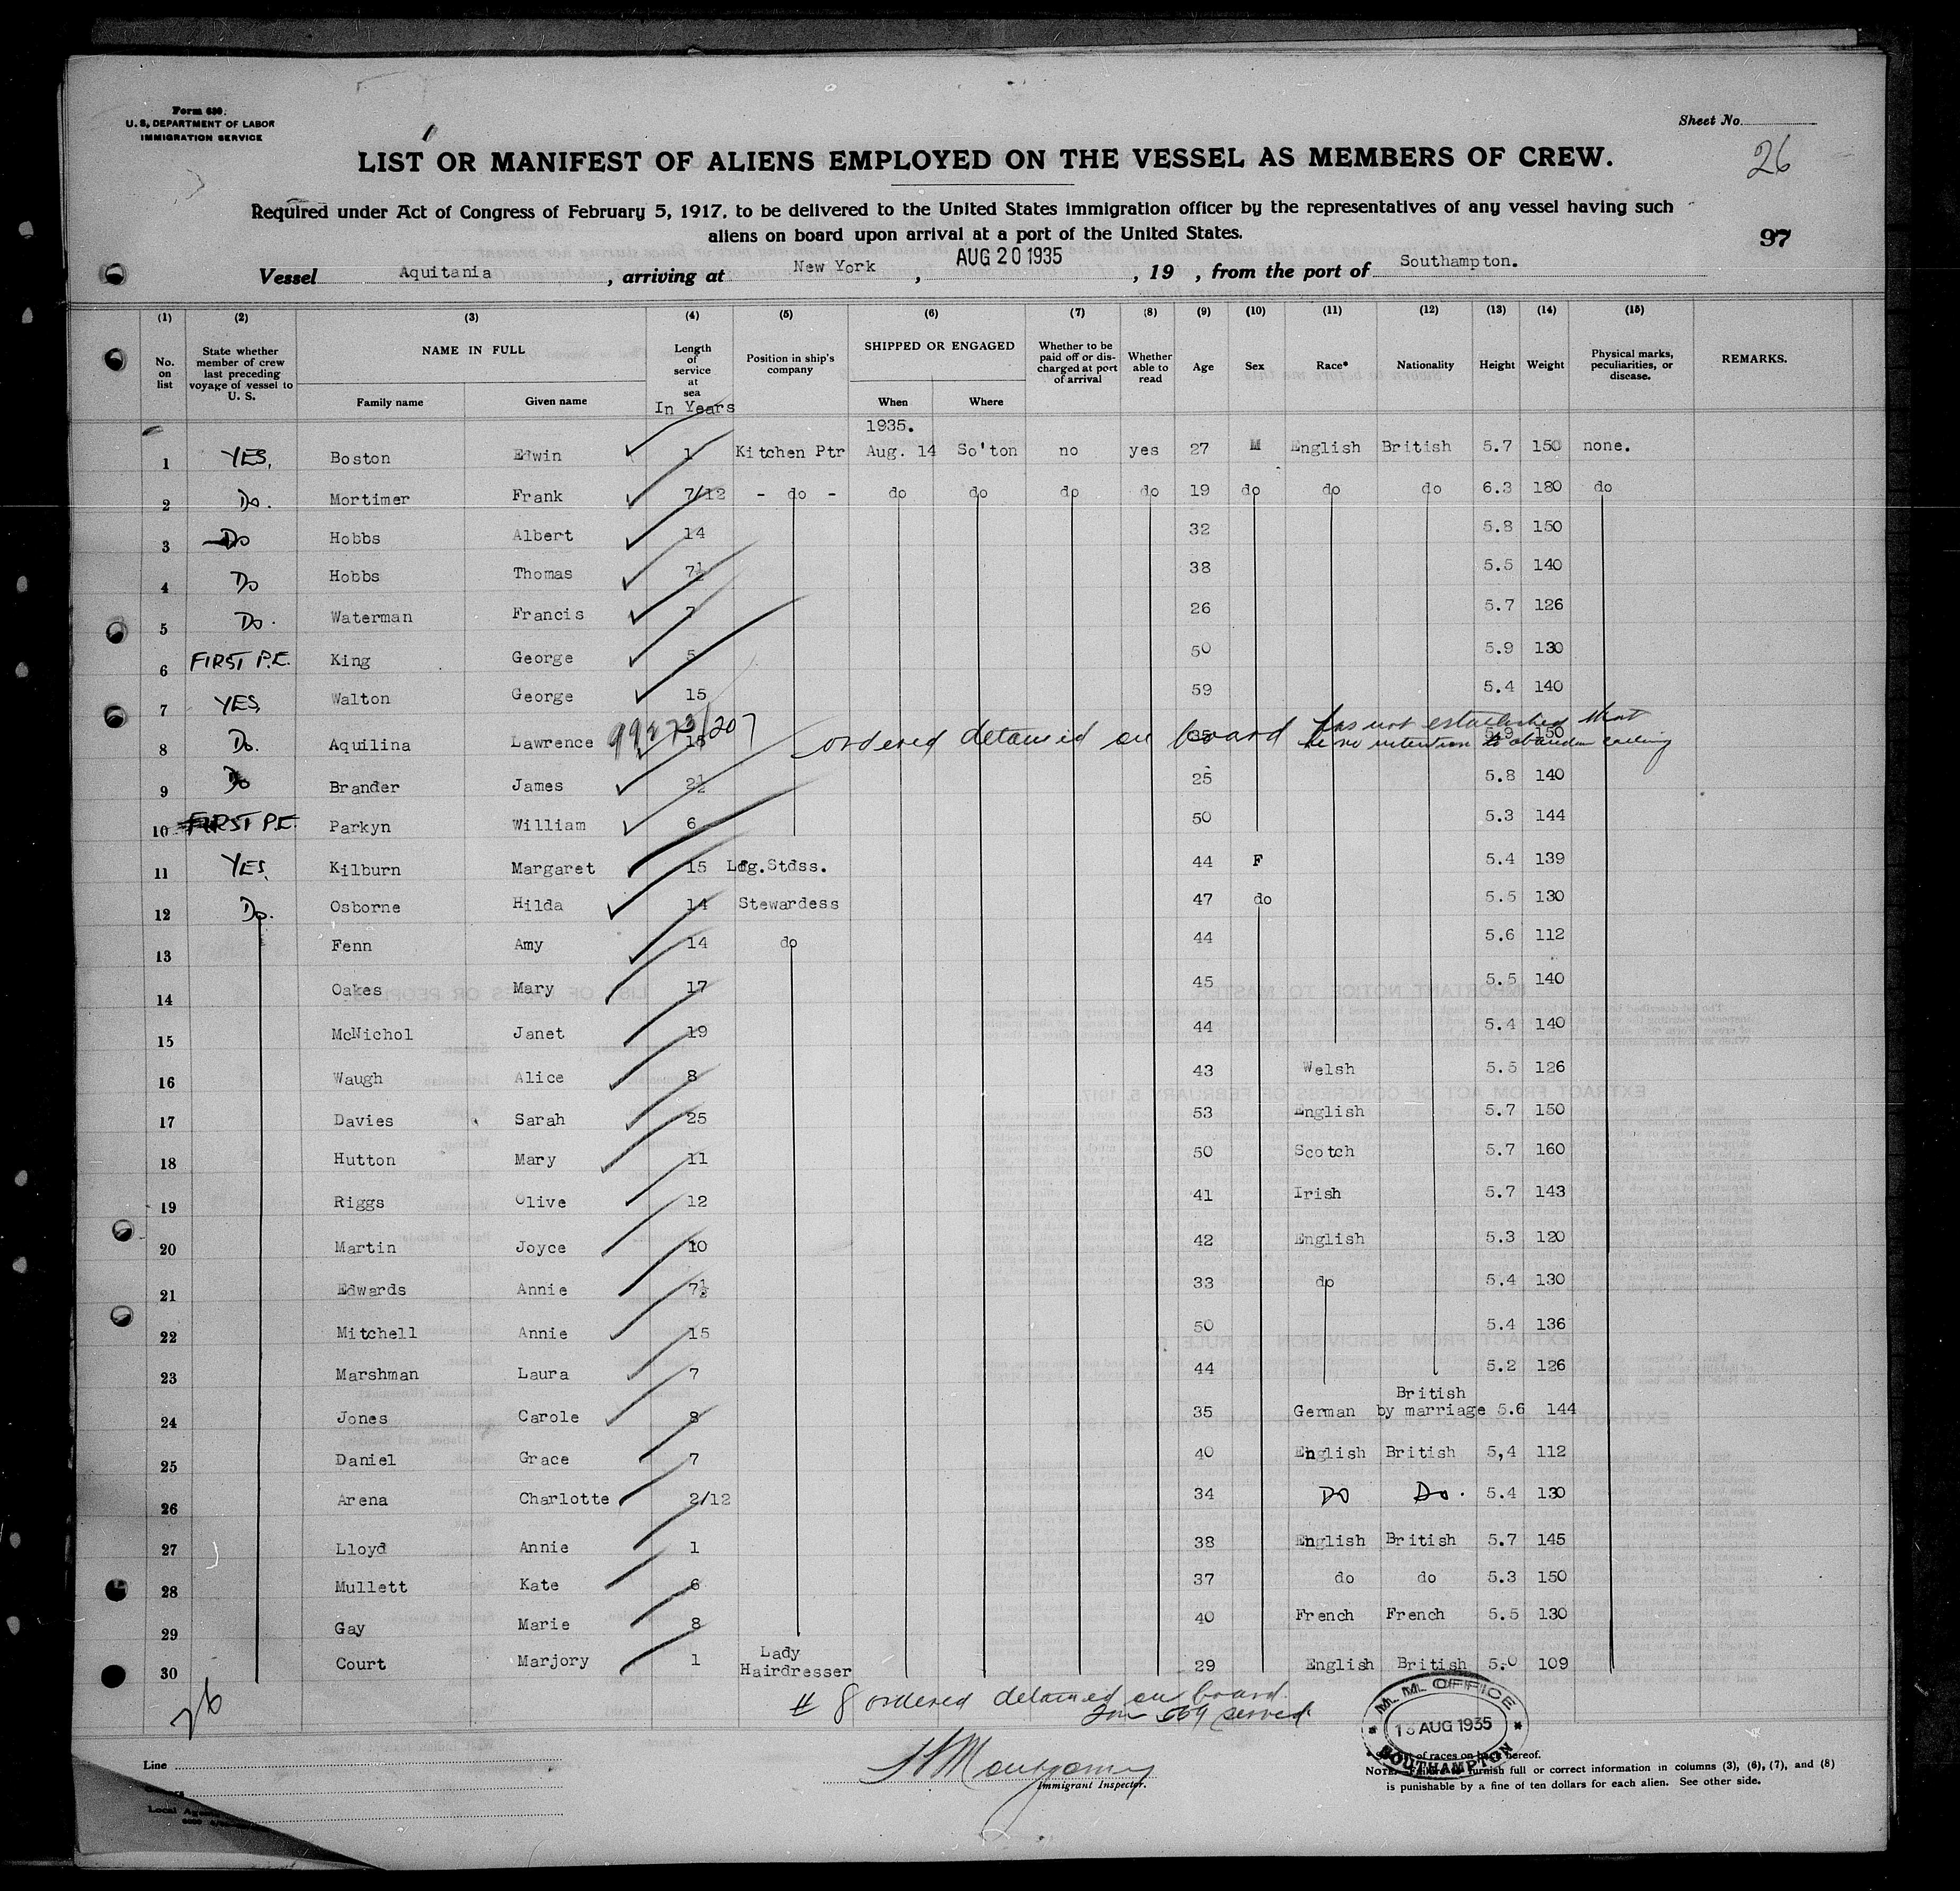 Form 680.
U. S. DEPARTMENT OF LABOR
IMMIGRATION SERVICE
Sheet No.
26
LIST OR MANIFEST OF ALIENS EMPLOYED ON THE VESSEL AS MEMBERS OF CREW.
Required under Act of Congress of February 5, 1917, to be delivered to the United States immigration officer by the representatives of any vessel having such
aliens on board upon arrival at a port of the United States.
97
Vessel Aquitania , arriving at New York , AUG 20 1935 , 19 , from the port of Southampton.
(1) (2) (3) (4) (5) (6) (7) (8) (9) (10) (11) (12) (13) (14) (15)
No. on list State whether member of crew last preceding voyage of vessel to U. S. NAME IN FULL Family name Given name Length of service at sea In Years Position in ship's company SHIPPED OR ENGAGED When Where Whether to be paid off or discharged at port of arrival Whether able to read Age Sex Race* Nationality Height Weight Physical marks, peculiarities, or disease. REMARKS.
1935.
1 YES, Boston Edwin 1 Kitchen Ptr Aug. 14 So'ton no yes 27 M English British 5.7 150 none.
2 Do. Mortimer Frank 7/12 - do - do do do do 19 do do do 6.3 180 do
3 Do Hobbs Albert 14 32 5.8 150
4 Do Hobbs Thomas 7½ 38 5.5 140
5 Do. Waterman Francis 7 26 5.7 126
6 FIRST P.E. King George 5 50 5.9 130
7 YES, Walton George 15 59 5.4 140
8 Do. Aquilina Lawrence 99273/207 15 ordered detained on board 35 has not established that 5.9 150
he no intention to abandon calling
9 Do Brander James 2½ 25 5.8 140
10 FIRST P.E. Parkyn William 6 50 5.3 144
11 YES, Kilburn Margaret 15 Ldg.Stdss. 44 F 5.4 139
12 Do. Osborne Hilda 14 Stewardess 47 do 5.5 130
13 Fenn Amy 14 do 44 5.6 112
14 Oakes Mary 17 45 5.5 140
15 McNichol Janet 19 44 5.4 140
16 Waugh Alice 8 43 Welsh 5.5 126
17 Davies Sarah 25 53 English 5.7 150
18 Hutton Mary 11 50 Scotch 5.7 160
19 Riggs Olive 12 41 Irish 5.7 143
20 Martin Joyce 10 42 English 5.3 120
21 Edwards Annie 7½ 33 do 5.4 130
22 Mitchell Annie 15 50 5.4 136
23 Marshman Laura 7 44 5.2 126
24 Jones Carole 8 35 German British by marriage 5.6 144
25 Daniel Grace 7 40 English British 5,4 112
26 Arena Charlotte 2/12 34 DO Do. 5.4 130
27 Lloyd Annie 1 38 English British 5.7 145
28 Mullett Kate 6 37 do do 5.3 150
29 Gay Marie 8 40 French French 5.5 130
30 Court Marjory 1 Lady Hairdresser 29 English British 5.0 109
26
# 8 ordered detained on board.
served
M. M. OFFICE
AUG 1935
SOUTHAMPTON
Line
Local Agents
Montgomery
Immigrant Inspector.
of races on back hereof.
NOTE.—Failure to furnish full or correct information in columns (3), (6), (7), and (8)
is punishable by a fine of ten dollars for each alien. See other side.